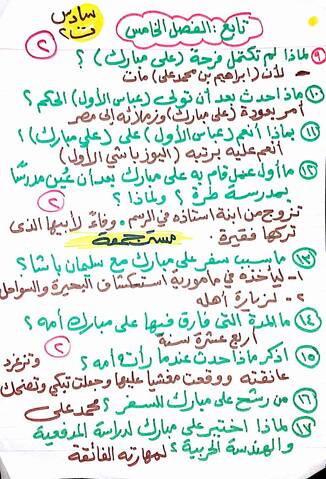 سادس
ت٢
تابع : الفصل الخامس
٢
٩ لماذا لم تكتمل فرحة (على مبارك) ؟
- لأن (إبراهيم بن محمد على) مات
١٠ ماذا حدث بعد أن تولى (عباس الأول) الحكم ؟
أمر بعودة (على مبارك) وزملائه إلى مصر
١١ بماذا أنعم (عباس الأول) على (على مبارك) ؟
أنعم عليه برتبه (اليوزباشى الأول)
١٢ ما أول عمل قام به على مبارك بعد أن عُين مدرسًا
بمدرسة طرة ؟ ولماذا ؟
٢
تزوج من ابنة استاذه فى الرسم . وفاءً لأبيها الذى
تركها فقيرة .
مستر جمعة
١٣ ما سبب سفر على مبارك مع سليمان باشا ؟
١- ليأخذه فى مأمورية استكشاف البحيرة والسواحل
٢- لزيارة أهله
١٤ ما المدة التى فارق فيها على مبارك أمه ؟
أربع عشرة سنة
٢
١٥ اذكر ماذا حدث عندما رأته أمه ؟
عانقته ووقعت مغشيا عليها وجعلت تبكى وتضحك وتزغرد
١٦ من رشح على مبارك للسفر ؟ محمد على
١٧ لماذا اختير على مبارك لدراسة المدفعية
والهندسة الحربية ؟ لمهارته الفائقة